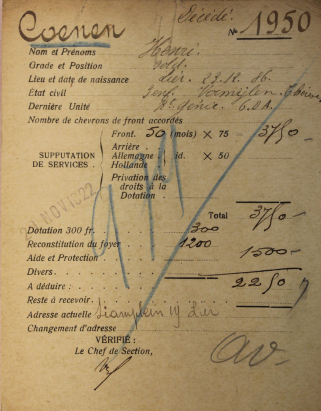 Décédé.
Coenen № 1950
Nom et Prénoms Henri
Grade et Position sold.
Lieu et date de naissance Lier 29.12.86.
État civil
Dernière Unité Bn Génie 6.D.A.
Nombre de chevrons de front accordés
Front. 50 (mois) × 75 - 3750 -
SUPPUTATION DE SERVICES.
Arrière .
Allemagne . id. × 50
Hollande
Privation des droits à la Dotation .
20 NOV 1922
Total 3750 -
Dotation 300 fr. 300
Reconstitution du foyer 1200
Aide et Protection 1500 -
Divers
A déduire : 2250
Reste à recevoir
Adresse actuelle 19 Lier
Changement d'adresse
VÉRIFIÉ :
Le Chef de Section,